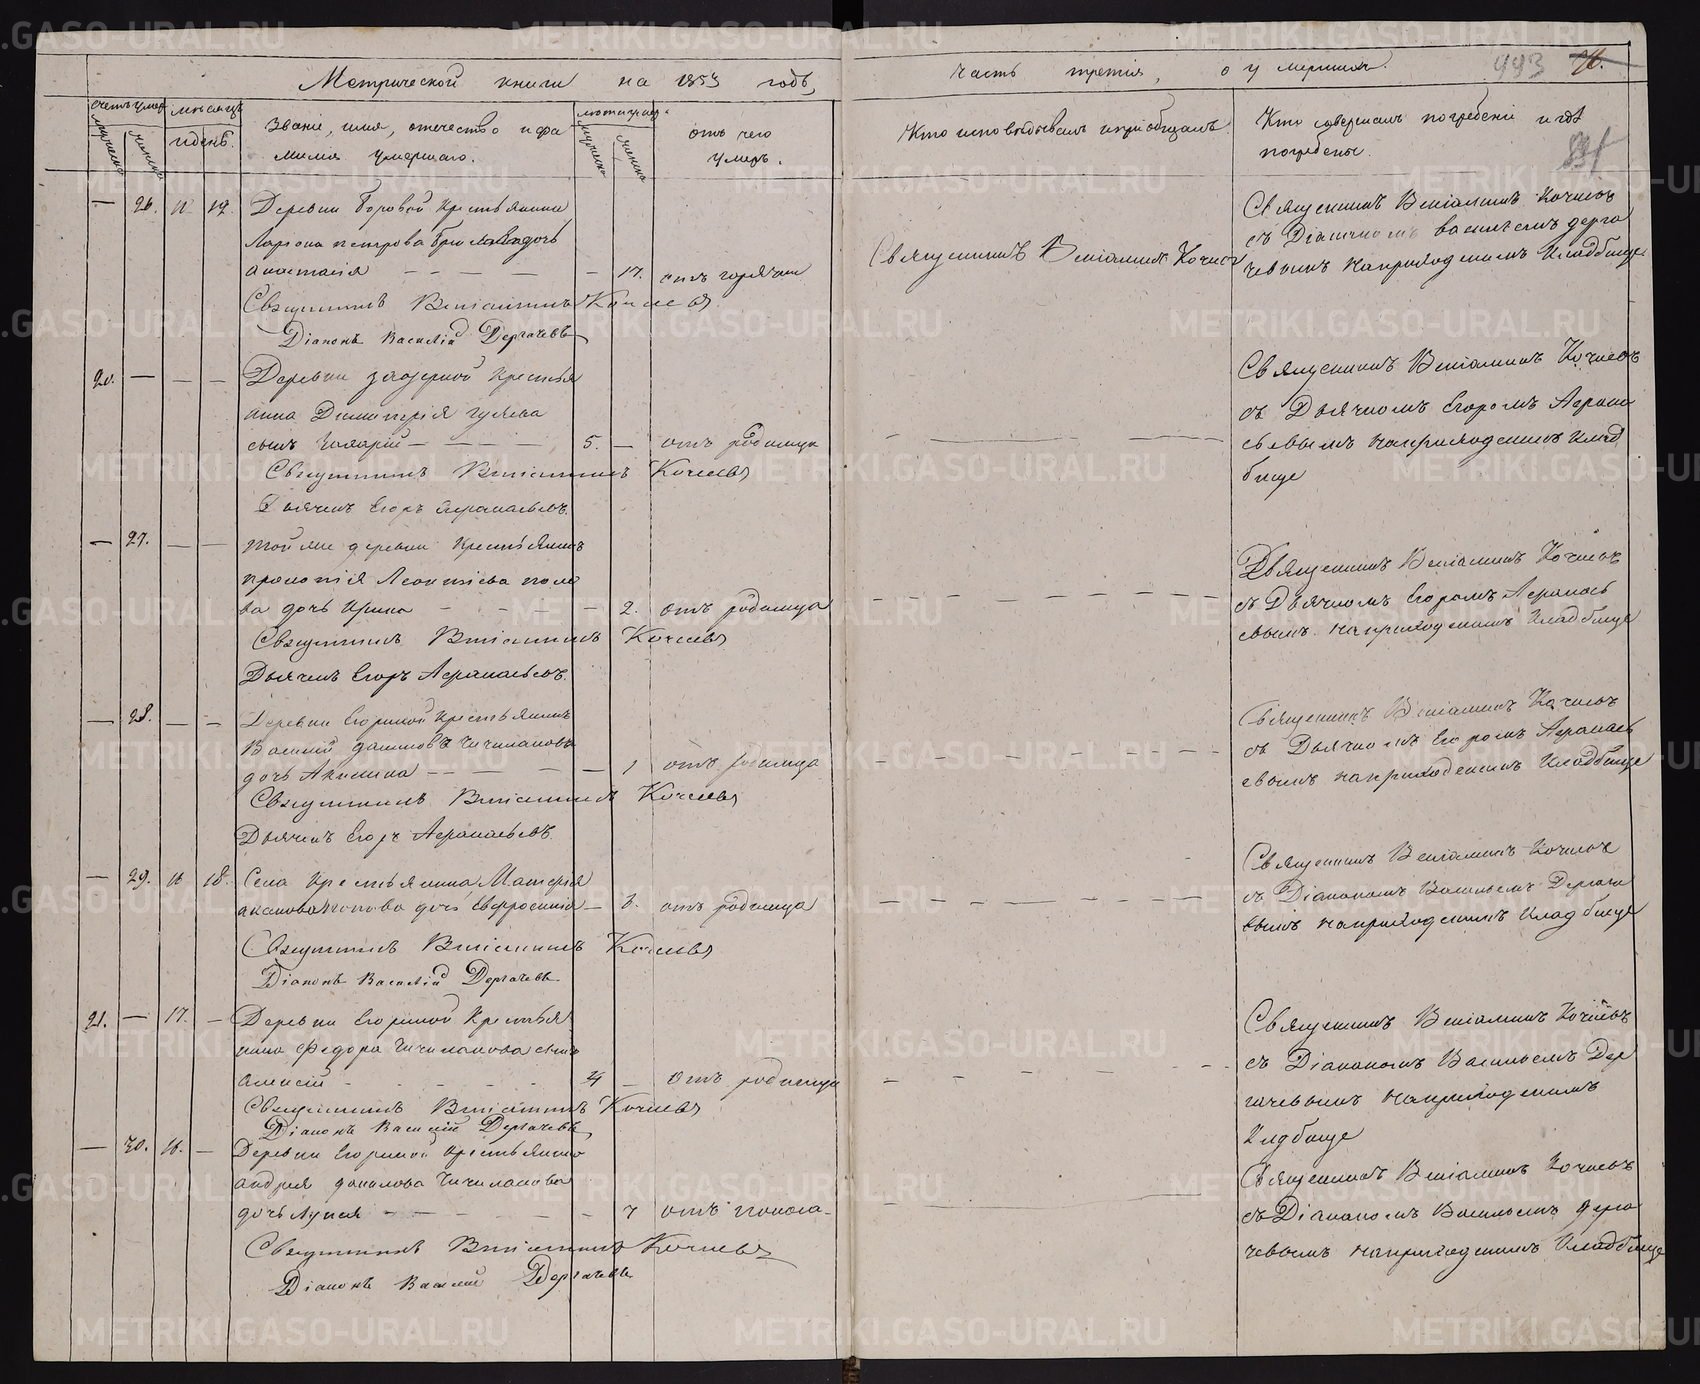 Метрической книги на 1853 годъ,
часть третія, о умершихъ.
993
счетъ умер
мѣсяцъ
и день.
мужеска
женска
Званіе, имя, отечество и фа
милія умершаго.
лѣта умер.
мужеска
женска
отъ чего
умеръ.
Кто исповѣдывалъ и пріобщалъ.
Кто совершалъ погребеніе и гдѣ
погребены.
— 26. 19.
Деревни Боровой крестьянина
Ларіона петрова дочь
анастасія — — — — — 17. отъ горячки
Священникъ Веніаминъ Кочневъ
Діаконъ Василій Дергачевъ
Священникъ Веніаминъ Кочнев
Священникъ Веніаминъ Кочневъ
съ Діакономъ васильемъ дерга
чевымъ на приходскомъ кладбище
20. — — —
Деревни заозерной крестья
нина Димитрія гуляева
сынъ — — — — 5. — отъ родимца
Священникъ Веніаминъ Кочневъ
Дьячекъ Егоръ Аѳанасьевъ.
Священникъ Веніаминъ Кочневъ
съ Дьячкомъ Егоромъ Аѳанас
ьевымъ на приходскомъ клад
бище
— 27. — —
той же деревни крестьянина
прокопія Леонтіева попо
ва дочь Ирина — — — — 2. отъ родимца
Священникъ Веніаминъ Кочневъ
Дьячекъ Егоръ Аѳанасьевъ.
Священникъ Веніаминъ Кочневъ
съ Дьячкомъ Егоромъ Аѳанась
евымъ на приходскомъ кладбище
— 28. — —
Деревни крестьянина
Василій данилова Чичиланова
дочь Акилина — — — — 1 отъ родимца
Священникъ Веніаминъ Кочневъ
Дьячекъ Егоръ Аѳанасьевъ.
Священникъ Веніаминъ Кочневъ
съ Дьячкомъ Егоромъ Аѳанась
евымъ на приходскомъ кладбище
— 29. 16 18.
Села крестьянина Матѳія
попова дочь Евфросинія — 3. отъ родимца
Священникъ Веніаминъ Кочневъ
Діаконъ Василій Дергачевъ
Священникъ Веніаминъ Кочневъ
съ Діакономъ Васильемъ Дергаче
вымъ на приходскомъ кладбище
21. — 17. —
Деревни крестья
нина Федора Чичиланова сынъ
алексій — — — — 4 — отъ родимца
Священникъ Веніаминъ Кочневъ
Діаконъ Василій Дергачевъ
Священникъ Веніаминъ Кочневъ
съ Діакономъ Васильемъ Дер
гачевымъ на приходскомъ
кладбище
— 30. 16. —
Деревни крестьянина
андрея данилова Чичиланова
дочь — — — — 7 отъ поноса
Священникъ Веніаминъ Кочневъ
Діаконъ Василій Дергачевъ
Священникъ Веніаминъ Кочневъ
съ Діакономъ Васильемъ дерга
чевымъ на приходскомъ кладбище
METRIKI.GASO-URAL.RU